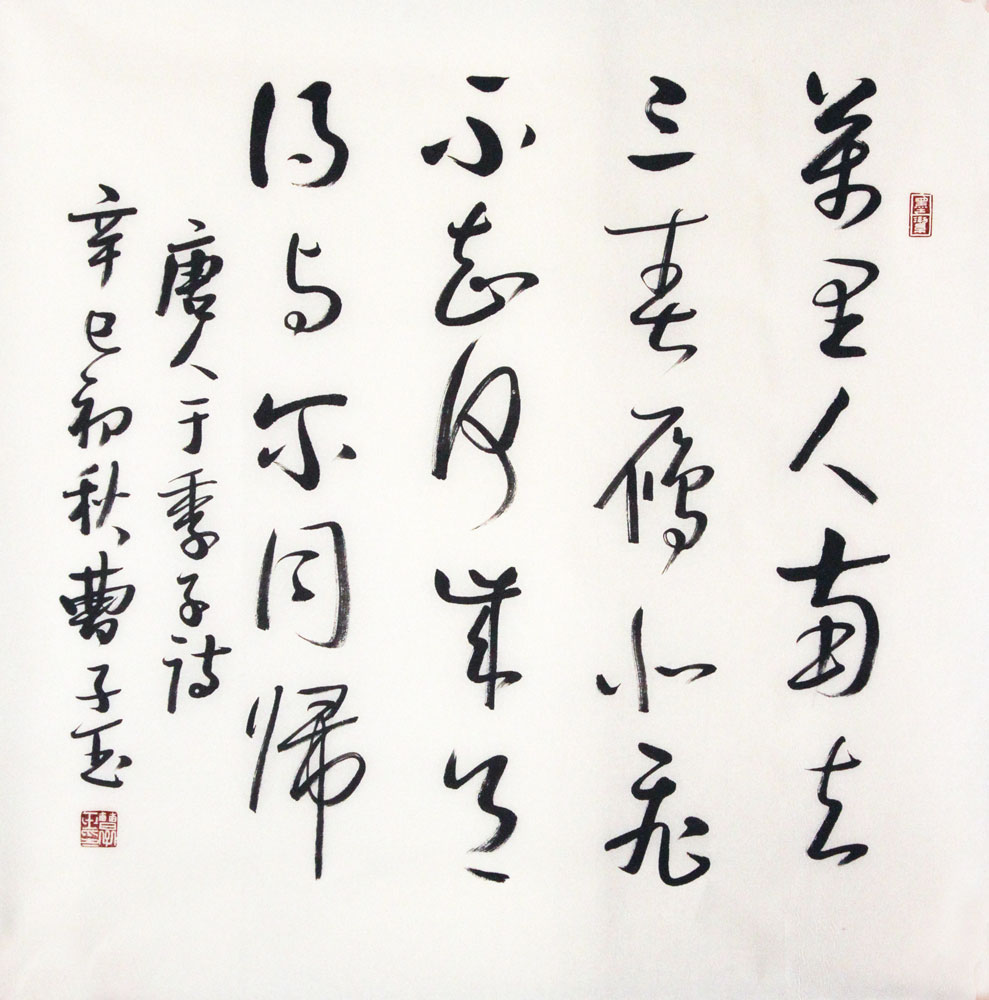 萬里人南去
三春鴈北飛
不知何歲月
得与尔同歸
唐人于季子詩
辛巳初秋曹子玉